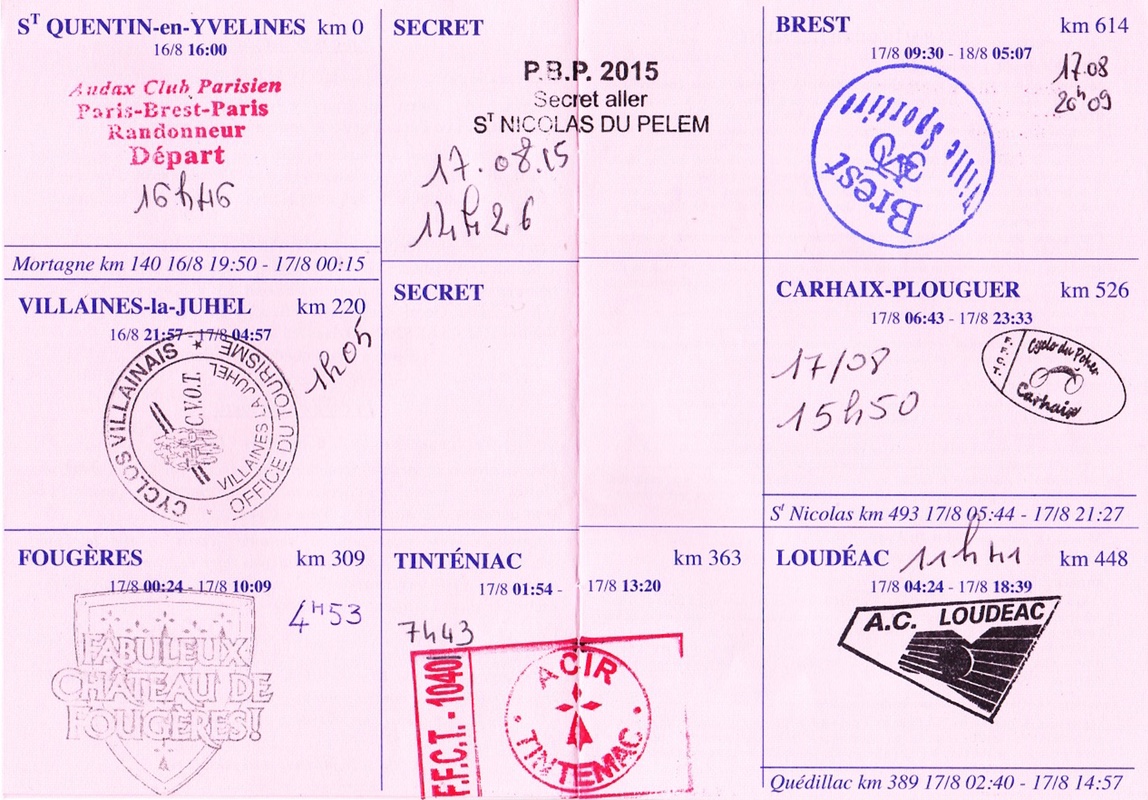 Sᵀ QUENTIN-en-YVELINES km 0
16/8 16:00
Audax Club Parisien
Paris-Brest-Paris
Randonneur
Départ
16h46
Mortagne km 140 16/8 19:50 - 17/8 00:15
VILLAINES-la-JUHEL km 220
16/8 21:57 - 17/8 04:57
1h05
CYCLOS VILLAINAIS ★ OFFICE DU TOURISME
VILLAINES LA JUHEL
C.V.O.T.
FOUGÈRES km 309
17/8 00:24 - 17/8 10:09
4H53
FABULEUX
CHÂTEAU DE
FOUGÈRES!
SECRET
P.B.P. 2015
Secret aller
Sᵀ NICOLAS DU PELEM
17.08.15
14h26
SECRET
TINTÉNIAC km 363
17/8 01:54 - 17/8 13:20
7h43
F.F.C.T. - 1040
ACIR
TINTENIAC
BREST km 614
17/8 09:30 - 18/8 05:07
17.08
20h09
Brest
Ville Sportive
CARHAIX-PLOUGUER km 526
17/8 06:43 - 17/8 23:33
17/08
15h50
Cyclo du Poher
Carhaix
Sᵗ Nicolas km 493 17/8 05:44 - 17/8 21:27
LOUDÉAC 11h41 km 448
17/8 04:24 - 17/8 18:39
A.C. LOUDEAC
Quédillac km 389 17/8 02:40 - 17/8 14:57